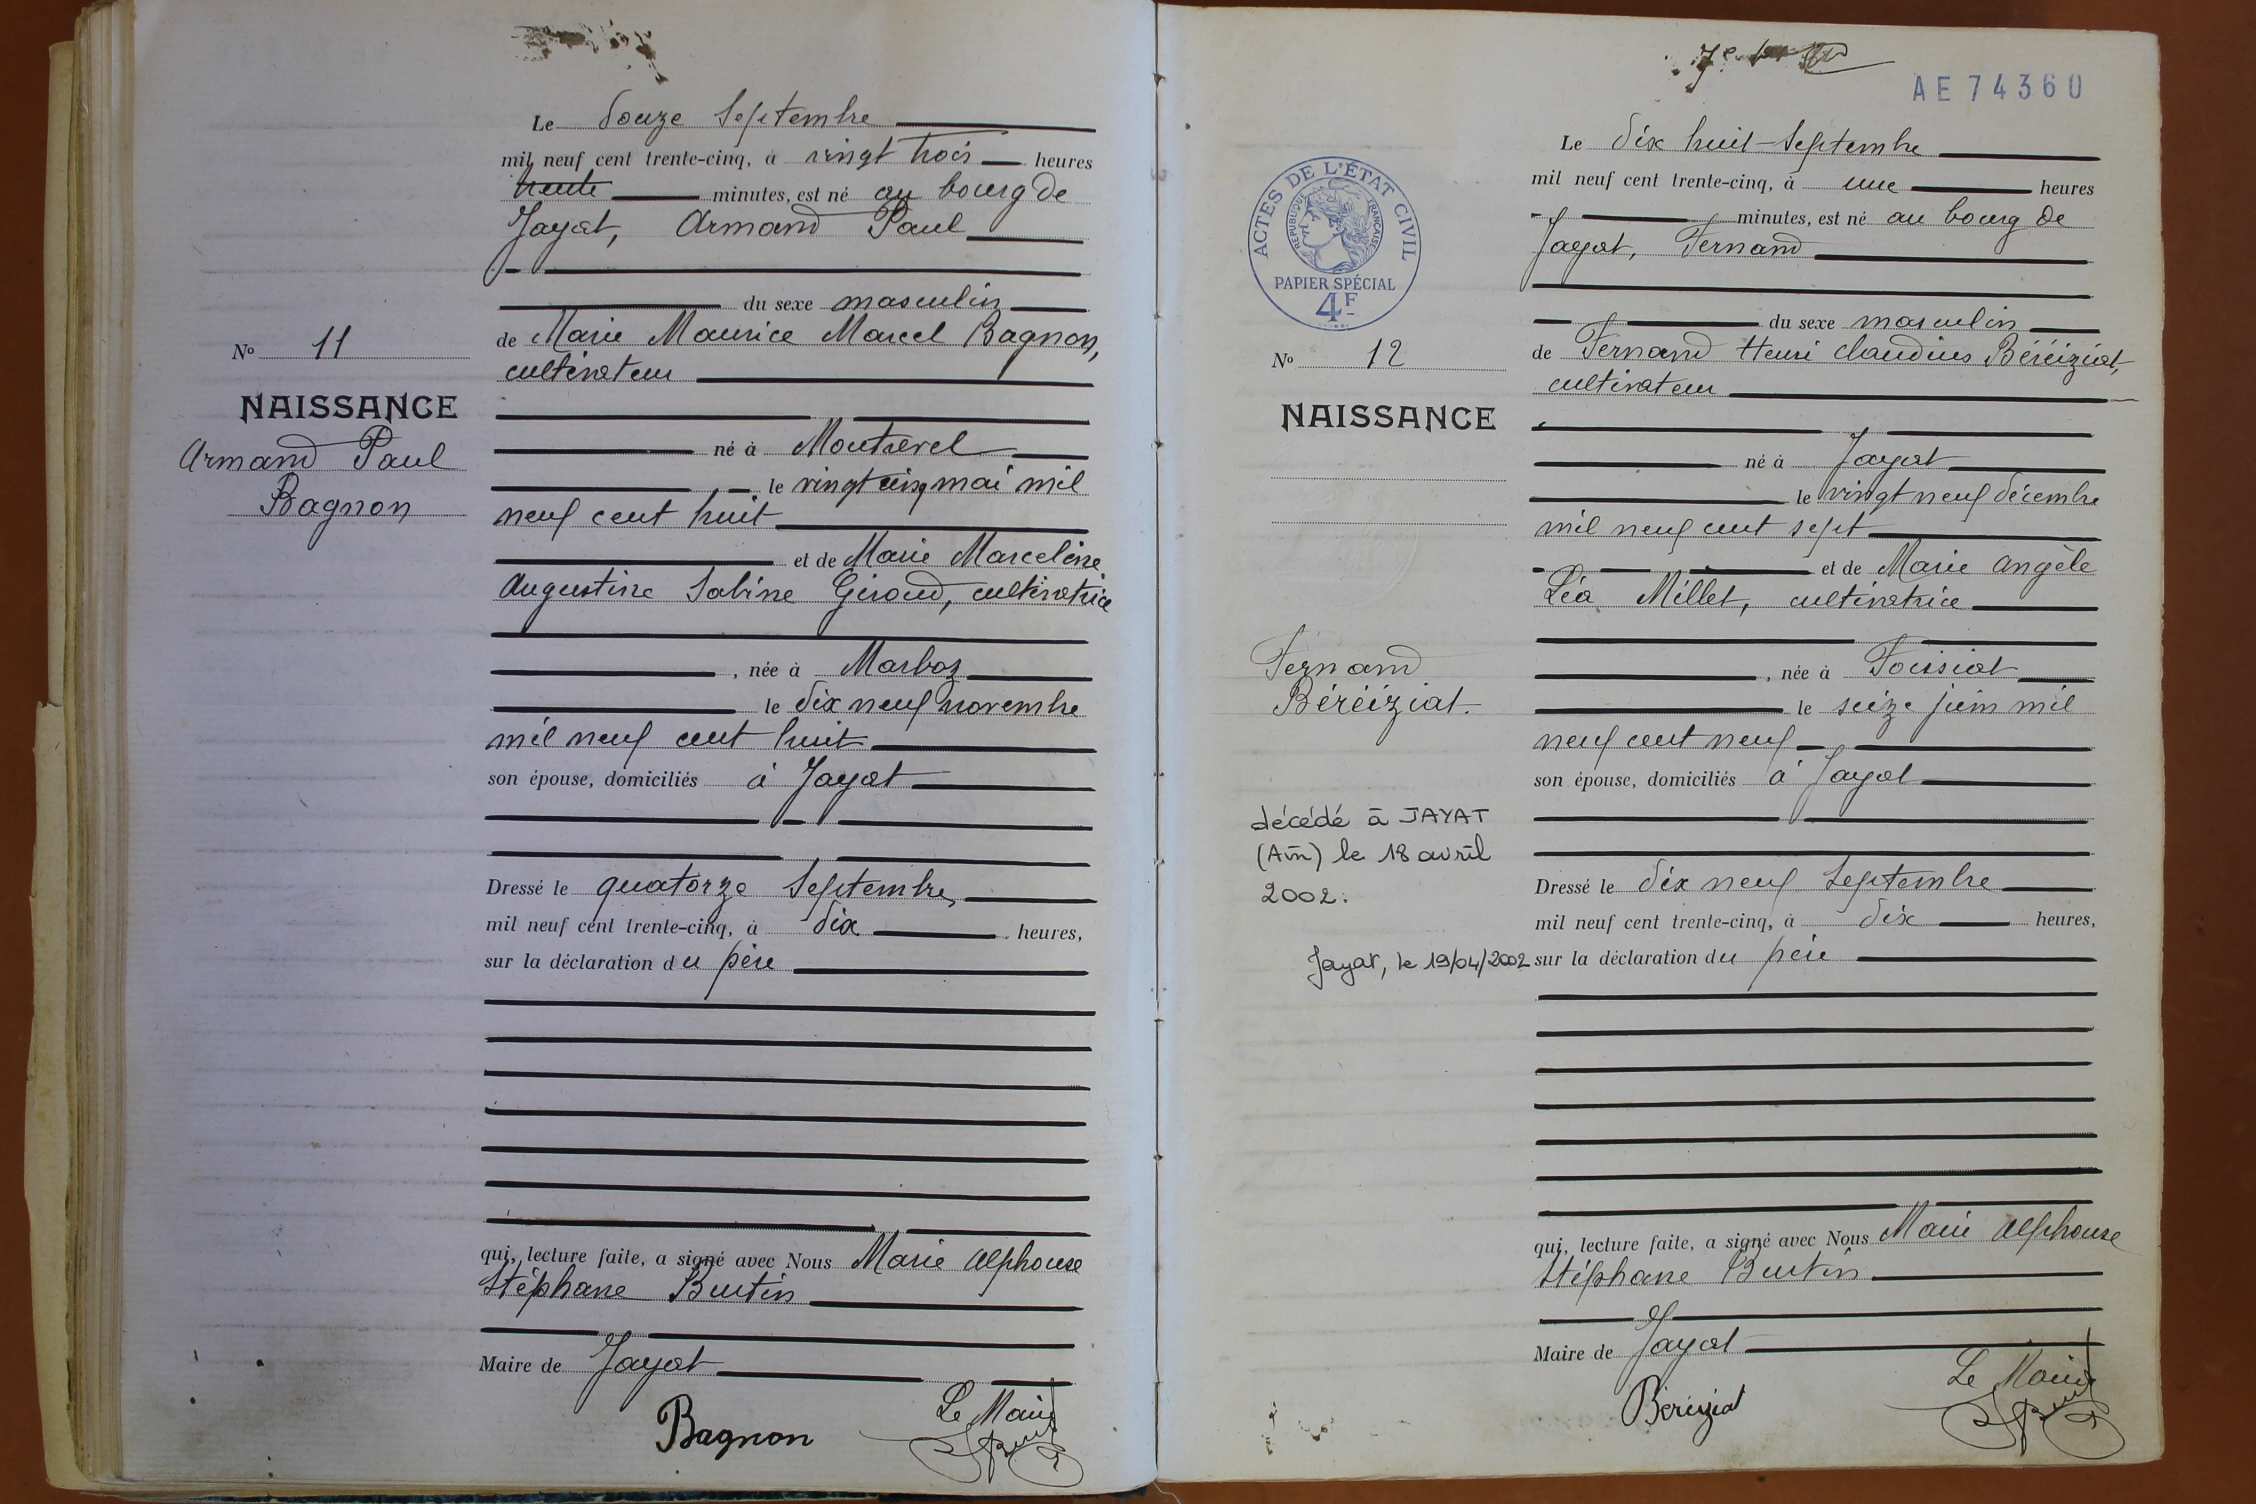 Le douze Septembre
mil neuf cent trente-cinq, à vingt trois heures
trente minutes, est né au bourg de
Jayat, Armand Paul
du sexe masculin
de Marie Maurice Marcel Bagnon,
cultivateur
né à Montrevel
le vingt cinq mai mil
neuf cent huit
et de Marie Marceline
Augustine Sabine Giroud, cultivatrice
, née à Marboz
le dix neuf novembre
mil neuf cent huit
son épouse, domiciliés à Jayat
Dressé le quatorze Septembre,
mil neuf cent trente-cinq, à dix heures,
sur la déclaration du père
qui, lecture faite, a signé avec Nous Marie Alphonse
Stéphane Burtin
Maire de Jayat
Le Maire
Bagnon
No 11
NAISSANCE
Armand Paul
Bagnon
AE 74360
Le dix huit Septembre
mil neuf cent trente-cinq, à une heures
minutes, est né au bourg de
Jayat, Fernand
du sexe masculin
de Fernand Henri Claudius Béréiziat,
cultivateur
né à Jayat
le vingt neuf décembre
mil neuf cent sept
et de Marie Angèle
Léa Millet, cultivatrice
, née à Foissiat
le seize juin mil
neuf cent neuf
son épouse, domiciliés à Jayat
Dressé le dix neuf Septembre
mil neuf cent trente-cinq, à dix heures,
sur la déclaration du père
qui, lecture faite, a signé avec Nous Marie Alphonse
Stéphane Burtin
Maire de Jayat
Le Maire
Béréiziat
ACTES DE L'ÉTAT CIVIL
RÉPUBLIQUE FRANÇAISE
PAPIER SPÉCIAL
4F
No 12
NAISSANCE
Fernand
Béréiziat.
décédé à JAYAT
(Ain) le 18 avril
2002.
Jayat, le 19/04/2002